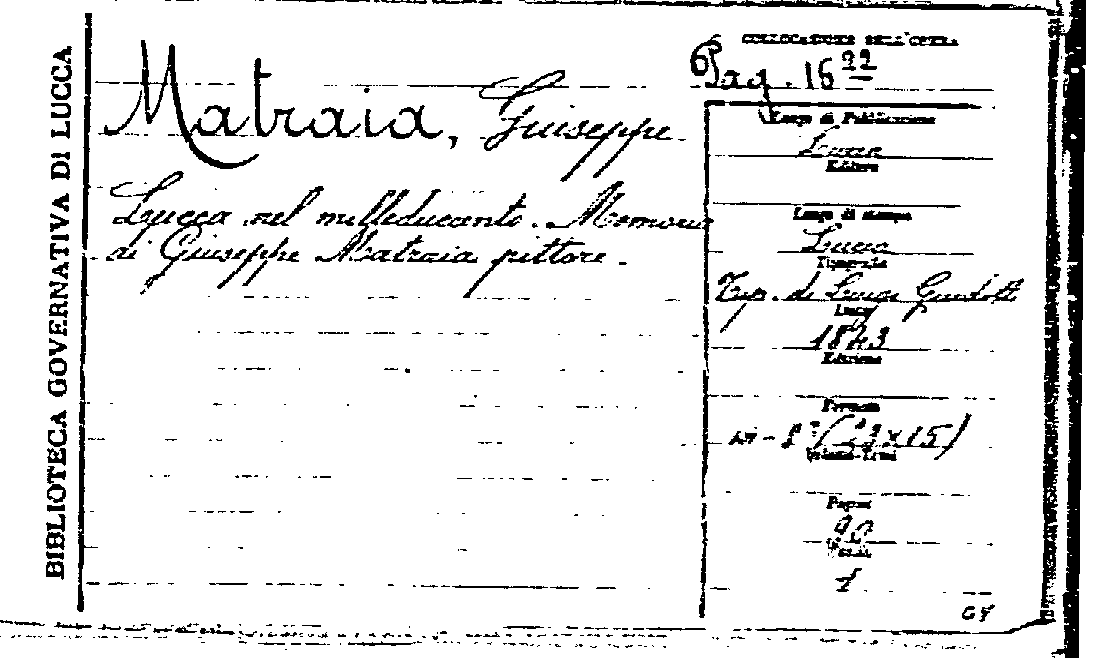 BIBLIOTECA GOVERNATIVA DI LUCCA
Matraia, Giuseppe
Lucca nel milleducento. Memoria
di Giuseppe Matraia pittore.
COLLOCAZIONE DELL'OPERA
Pag. 16 22
Luogo di Pubblicazione
Lucca
Editore
Luogo di stampa
Lucca
Tipografia
Tip. di Luigi Guidotti
1843
Edizione
Formato
in-8° (23x15)
Pagine
1